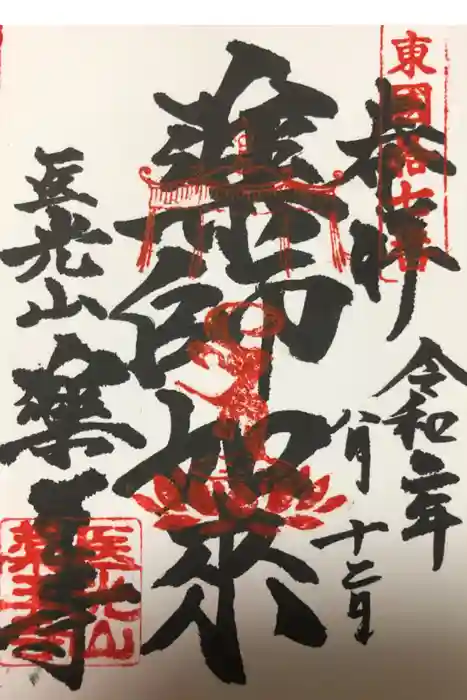 奉拝
令和二年
八月十二日
薬師如来
医光山
薬王寺
東国花
医光山
薬王寺